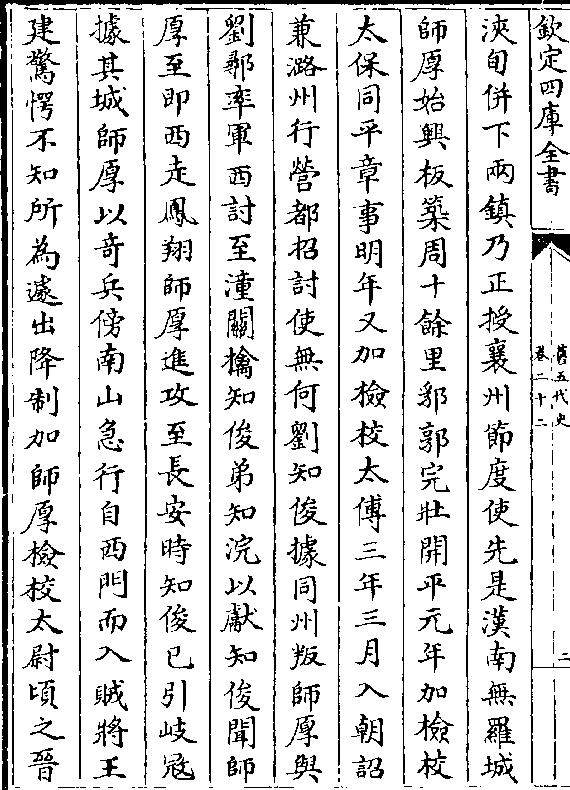 欽定四庫全書
舊五代史
卷二十二
二
浹旬併下兩鎮乃正授襄州節度使先是漢南無羅城
師厚始興板築周十餘里郛郭完壯開平元年加檢校
太保同平章事明年又加檢校太傅三年三月入朝詔
兼潞州行營都招討使無何劉知俊據同州叛師厚與
劉鄩率軍西討至潼關擒知俊弟知浣以獻知俊聞師
厚至即西走鳳翔師厚進攻至長安時知俊已引岐寇
據其城師厚以奇兵傍南山急行自西門而入賊將王
建驚愕不知所為遽出降制加師厚檢校太尉頃之晉